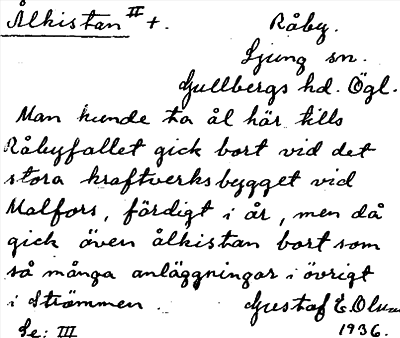 Ålkistan II +. Råby.
Ljung sn.
Gullbergs hd. Ögl.
Man kunde ta ål här tills
Råbyfallet gick bort vid det
stora kraftverksbygget vid
Malfors, färdigt i år, men då
gick även ålkistan bort som
så många anläggningar i övrigt
i Strömmen. Gustaf E. Olsson
Se: III 1936.